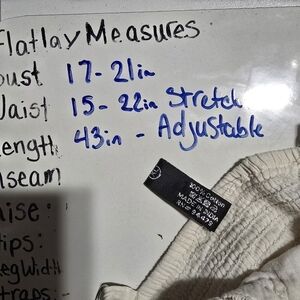 Flatlay Measures
Bust 17-21in
Waist 15-22in Stretch
Length 43in - Adjustable
Inseam
Rise:
Hips:
Leg Width
Straps:
100% Cotton
MADE IN INDIA